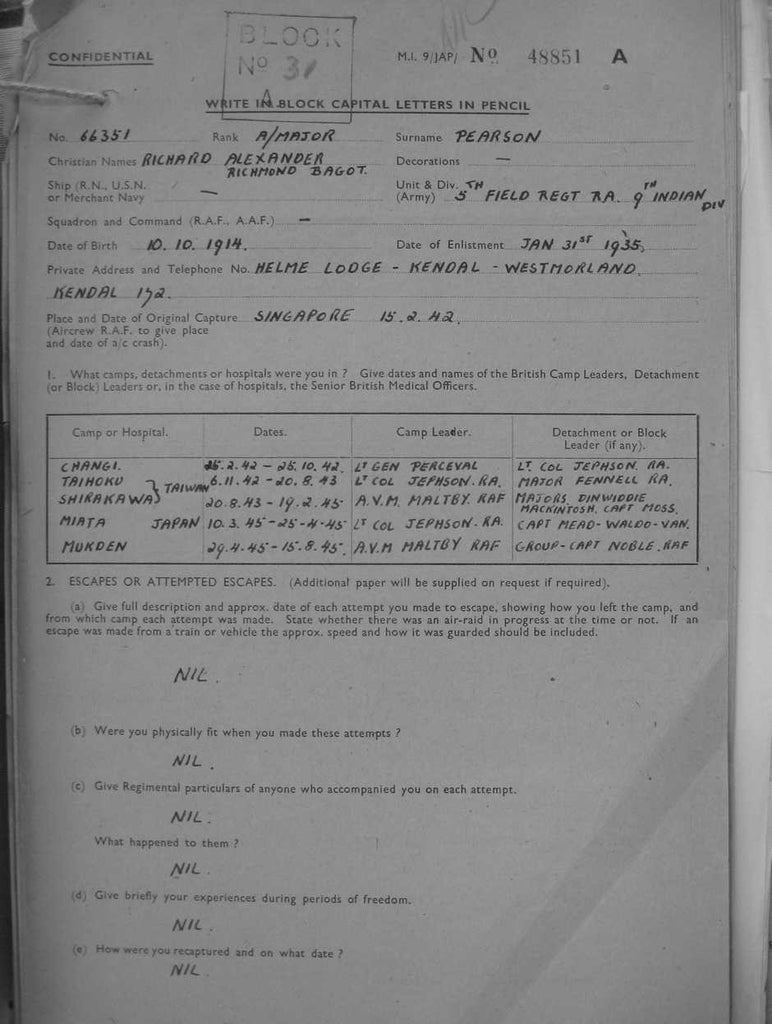 BLOCK
No 31
A
CONFIDENTIAL
M.I. 9/JAP/ No. 48851 A
WRITE IN BLOCK CAPITAL LETTERS IN PENCIL
No. 66351 Rank A/MAJOR Surname PEARSON
Christian Names RICHARD ALEXANDER RICHMOND BAGOT. Decorations —
Ship (R.N., U.S.N. or Merchant Navy — Unit & Div. (Army) 5TH FIELD REGT RA. 9TH INDIAN DIV
Squadron and Command (R.A.F., A.A.F.) —
Date of Birth 10.10.1914. Date of Enlistment JAN 31ST 1935,
Private Address and Telephone No. HELME LODGE - KENDAL - WESTMORLAND.
KENDAL 172.
Place and Date of Original Capture SINGAPORE 15.2.42.
(Aircrew R.A.F. to give place
and date of a/c crash).
1. What camps, detachments or hospitals were you in ? Give dates and names of the British Camp Leaders, Detachment
(or Block) Leaders or, in the case of hospitals, the Senior British Medical Officers.
Camp or Hospital. Dates. Camp Leader. Detachment or Block Leader (if any).
CHANGI. 25.2.42 - 25.10.42. LT GEN PERCEVAL LT. COL JEPHSON. RA.
TAIHOKU } TAIWAN 6.11.42 - 20.8.43 LT COL JEPHSON.RA. MAJOR FENNELL RA.
SHIRAKAWA 20.8.43 - 19.2.45 A.V.M. MALTBY RAF MAJORS DINWIDDIE MACKINTOSH. CAPT MOSS.
MIATA JAPAN 10.3.45 - 25-4-45 LT COL JEPHSON. RA. CAPT MEAD-WALDO-VAN.
MUKDEN 29.4.45 - 15.8.45. A.V.M MALTBY RAF GROUP-CAPT NOBLE.RAF
2. ESCAPES OR ATTEMPTED ESCAPES. (Additional paper will be supplied on request if required).
(a) Give full description and approx. date of each attempt you made to escape, showing how you left the camp, and
from which camp each attempt was made. State whether there was an air-raid in progress at the time or not. If an
escape was made from a train or vehicle the approx. speed and how it was guarded should be included.
NIL.
(b) Were you physically fit when you made these attempts ?
NIL.
(c) Give Regimental particulars of anyone who accompanied you on each attempt.
NIL.
What happened to them ?
NIL.
(d) Give briefly your experiences during periods of freedom.
NIL.
(e) How were you recaptured and on what date ?
NIL.